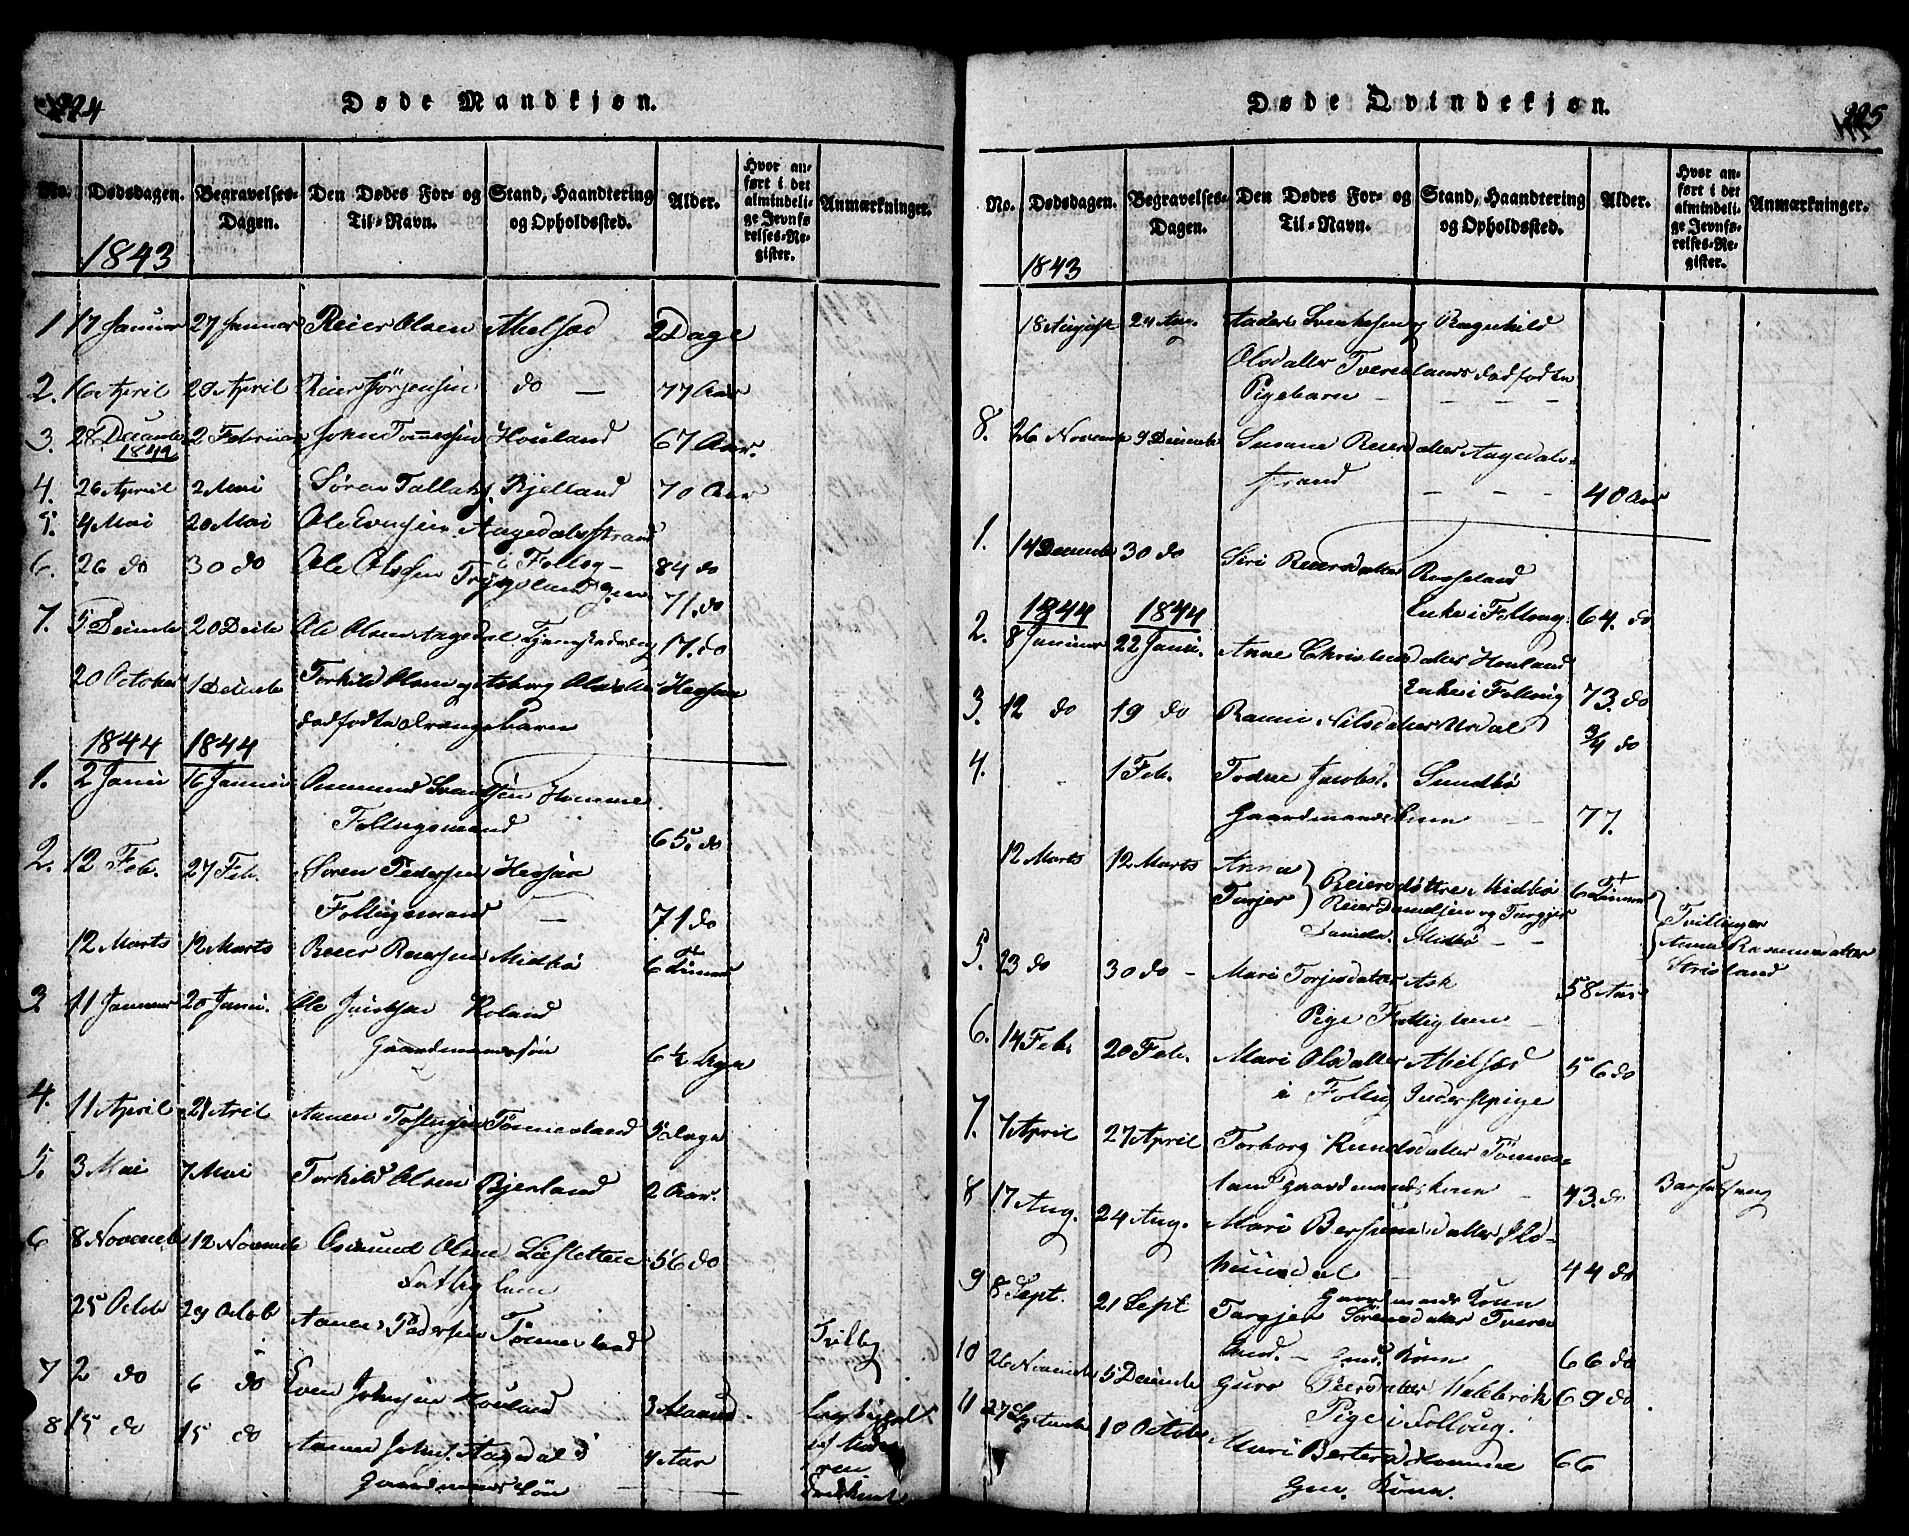 224
Døde Mandkjøn.
No. Dødsdagen. Begravelses-Dagen. Den Dødes For- og Til-Navn. Stand, Haandtering og Opholdssted. Alder. Hvor anført i det almindelige Jevnførelses-Register. Anmærkninger.
1843
1 17 Januar 27 Januar Reier Olsen Abelsæd 2 Dage
2. 16 April 29 April Reier Jörgensen do — 77 Aar
3. 28 Decembr 1842 2 Februar John Tommesen Houland 67 Aar.
4. 26 April 2 Mai Søren Tallaks. Kjelland 70 Aar
5. 4 Mai 20 Mai Ole Evensen Aagedalsstrand
i Follog - 84 do
6. 26 do 30 do Ole Olssen Trygsland gm. 71. do
7. 5 Decembr 20 Decbr Ole Olsen Aagedal Tjenestedreng 17. do
20 October 1 Decembr Torkild Olsen og Asborg Olsdatter Hessaae
dødfødte Drengebarn
1844 1844
1. 2 Januar 16 Januar Aamund Svensen Homme
Follugsmand 65. do
2. 12 Feb. 27 Feb. Søren Pedersen Hessaae
Follugsmand — 71 do
12 Marts 12 Marts Reier Reiersen Midbö 6 Timer
3 11 Januar 20 Janu. Ole Jacobsen Roland
Gaardmandssön 6 ½ Uger
4. 11 April 21 Aril Aanen Tollugsen Tönnesland 5 Dage
5. 3 Mai 7 Mai Torkild Olsen Bjerland 2 Aar.
6 8 Novembr 12 Novembr Osmund Olsen Lösletten 56 do
Fattig lem
25 Octob 29 Octob Aanen Pedersen Tönnesland Tvilling
7 2 do 6 do Even Johnsen Houland 3 Maaned.
8 15 do 15 do Aanen Johns. Aagedal 4 Aar
Gaardmands Sön — —
225
Døde Qvindekjøn.
No. Dødsdagen. Begravelses-Dagen. Den Dødes For- og Til-Navn. Stand, Haandtering og Opholdssted. Alder. Hvor anført i det almindelige Jevnførelses-Register. Anmærkninger.
1843
18 August 24 Aug. Anders Svenkesen og Ragnhild
Olsdatter Tveresland dødfødte
Pigebarn — — — —
8. 26 Novembr 9 Decembr Susane Reiersdatter Aagedals-
strand — — — 40 Aar
1. 14 Decembr 30 do Siri Reiersdatter Rosseland
Enke i Follug. 64. do
1844 1844
2. 8 Januar 22 Janu. Anne Christensdatter Houland
Enke i Follug 73. do
3. 12 do 19 do Rannei Nilsdatter Usdal ¾ do
4. 1 Feb. Todne Jacobsd. Sundbö
Gaardmands kone — 77.
12 Marts 12 Marts Anna
Torjer } Reiersdøttre Midbö 6 Timer
Reier Danielsen og Torgjer
Daniels. Midbö — — } Tvillinger
Anna Rasmusdatter
5. 23 do 30 do — Mari Torjesdatter Ask 58 Aar
Pige Fattiglem
6. 14 Feb. 20 Feb. Mari Olsdatter Abelsæd 56 do
i Follug Inderstpige
7. 7 April 27 April Torborg Knudsdatter Tönnes-
land Gaardmandskone — 43. do Barselseng
8 17 Aug. 24 Aug. Mari datter
44 do
Gaardmands Kone
9 8 Sept. 21 Sept Torgjer Sörensdatter Tveres
land. — Gmd. Kone 66 do
10 26 Novembr 5 Decembr Guro Peersdatter 69 do
Pige i Follug.
11 27 Septembr 10 Octobr Mari Homme 66
Gm. Kone.